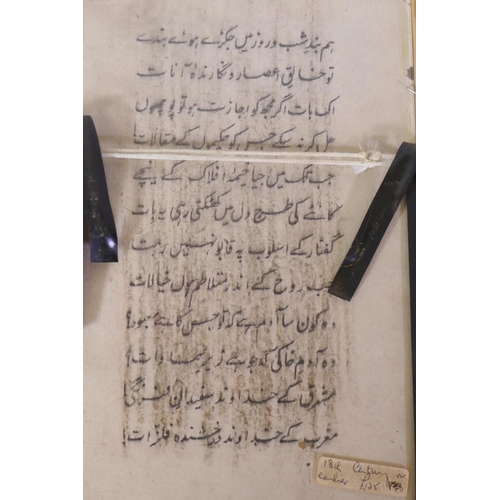 ہم بندِ شب و روز میں جکڑے ہوئے بندے
تو خالقِ اعصار و نگارندۂ آنات
اک بات اگر مجھ کو اجازت ہو تو پوچھوں
حل کر نہ سکے جس کو حکیموں کے مقالات!
جب تک میں جیا خیمۂ افلاک کے نیچے
کانٹے کی طرح دل میں کھٹکتی رہی یہ بات
گفتار کے اسلوب پہ قابو نہیں رہتا
جب روح کے اندر متلاطم ہوں خیالات
وہ کون سا آدم ہے کہ تو جس کا ہے معبود؟
وہ آدمِ خاکی کہ جو ہے زیرِ سماوات؟
مشرق کے خداوند سفیدانِ فرنگی!
مغرب کے خداوند درخشندہ فلزات!
18th Century or
earlier